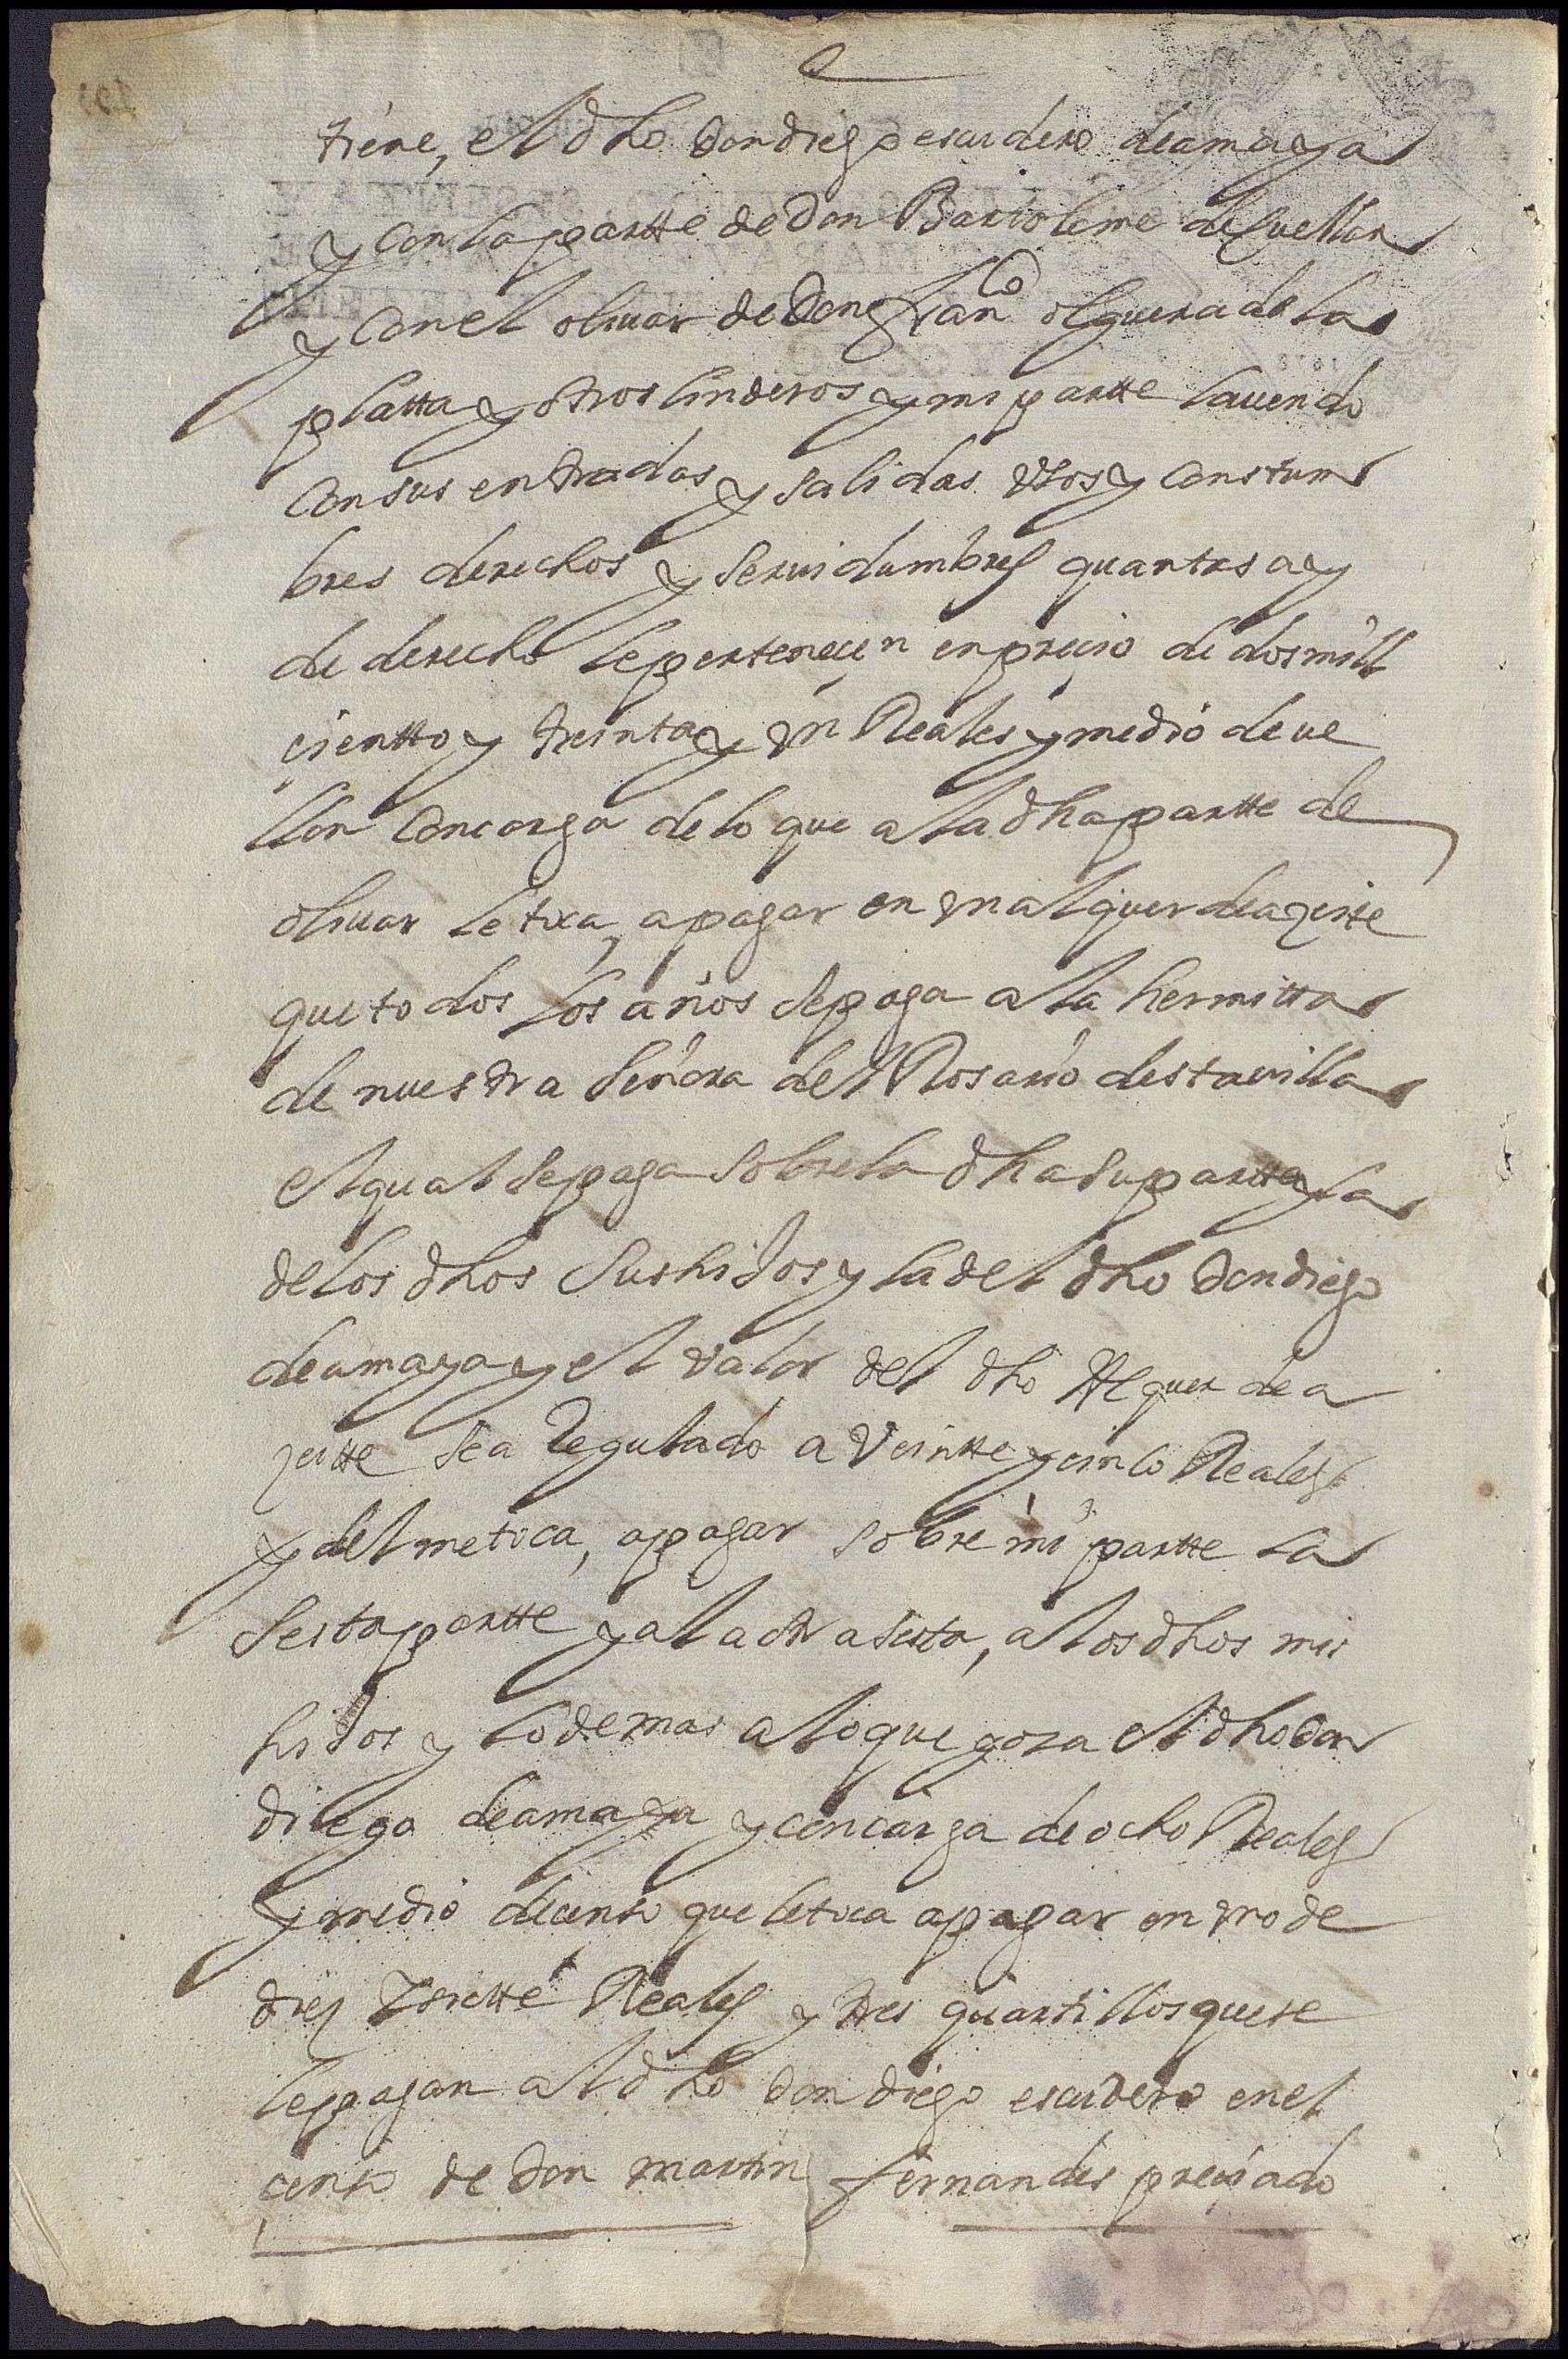 tiene, el dho Don diego escudero de amaya
y con la partte de Don Bartolome de Cuellar
y con el oliuar de Don Franco olguera de la
platta y otros linderos y mi partte la uendo
con sus entradas y salidas Vsos y constum
bres derechos y seruidumbres quantas ay
de derecho le pertenecen en precio de dos mill
cientto y treinta y Vn Reales y medio de ue
llon con carga de lo que a la dha partte de
oliuar le toca, a pagar en vn alquer de azeite
que todos los años se paga a la hermitta
de nuestra Señora del Rosario desta uilla
el qual se paga sobre la dha su partte y la
de los dhos sus hijos y la del dho Don diego
de amaya y el valor del dho Alquer de a
zeitte sea Regulado a Veintte y cinco Reales
y del me toca, a pagar sobre mi partte la
sesta partte y a la otra sesta, a los dhos mis
hijos y lo demas a lo que goza el dho Don
diego de amaya y con carga de ocho Reales
y medio de censo que le toca a pagar en vno de
diez y siette Reales y tres quartillos que se
le pagan al dho Don diego escudero en el
censo de Don martin fernandes preciado